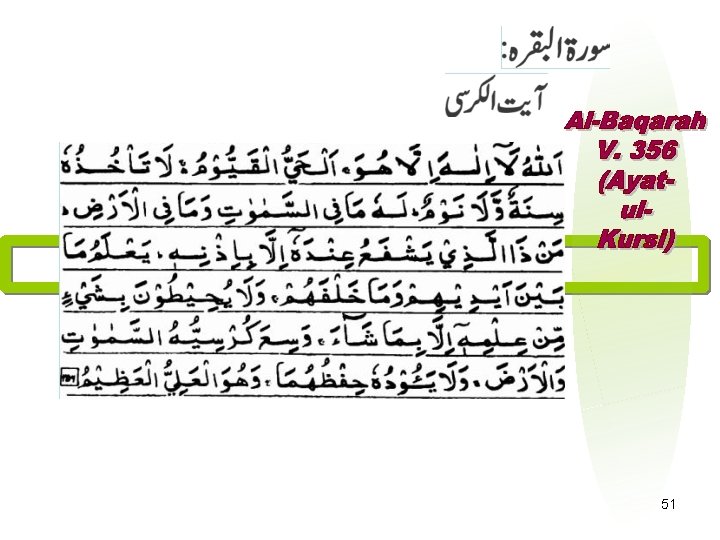 سورۃ البقرہ:
آیت الکرسی
Al-Baqarah
V. 356
(Ayat-
ul-
Kursi)
اَللّٰهُ لَاۤ اِلٰهَ اِلَّا هُوَ ۚ اَلْحَیُّ الْقَیُّوْمُ ۚ لَا تَاْخُذُهٗ
سِنَةٌ وَّلَا نَوْمٌ ؕ لَهٗ مَا فِی السَّمٰوٰتِ وَمَا فِی الْاَرْضِ ؕ
مَنْ ذَا الَّذِیْ یَشْفَعُ عِنْدَهٗۤ اِلَّا بِاِذْنِهٖ ؕ یَعْلَمُ مَا
بَیْنَ اَیْدِیْهِمْ وَمَا خَلْفَهُمْ ۚ وَلَا یُحِیْطُوْنَ بِشَیْءٍ
مِّنْ عِلْمِهٖۤ اِلَّا بِمَا شَآءَ ۚ وَسِعَ كُرْسِیُّهُ السَّمٰوٰتِ
وَالْاَرْضَ ۚ وَلَا یَـُٔوْدُهٗ حِفْظُهُمَا ۚ وَهُوَ الْعَلِیُّ الْعَظِیْمُ
51